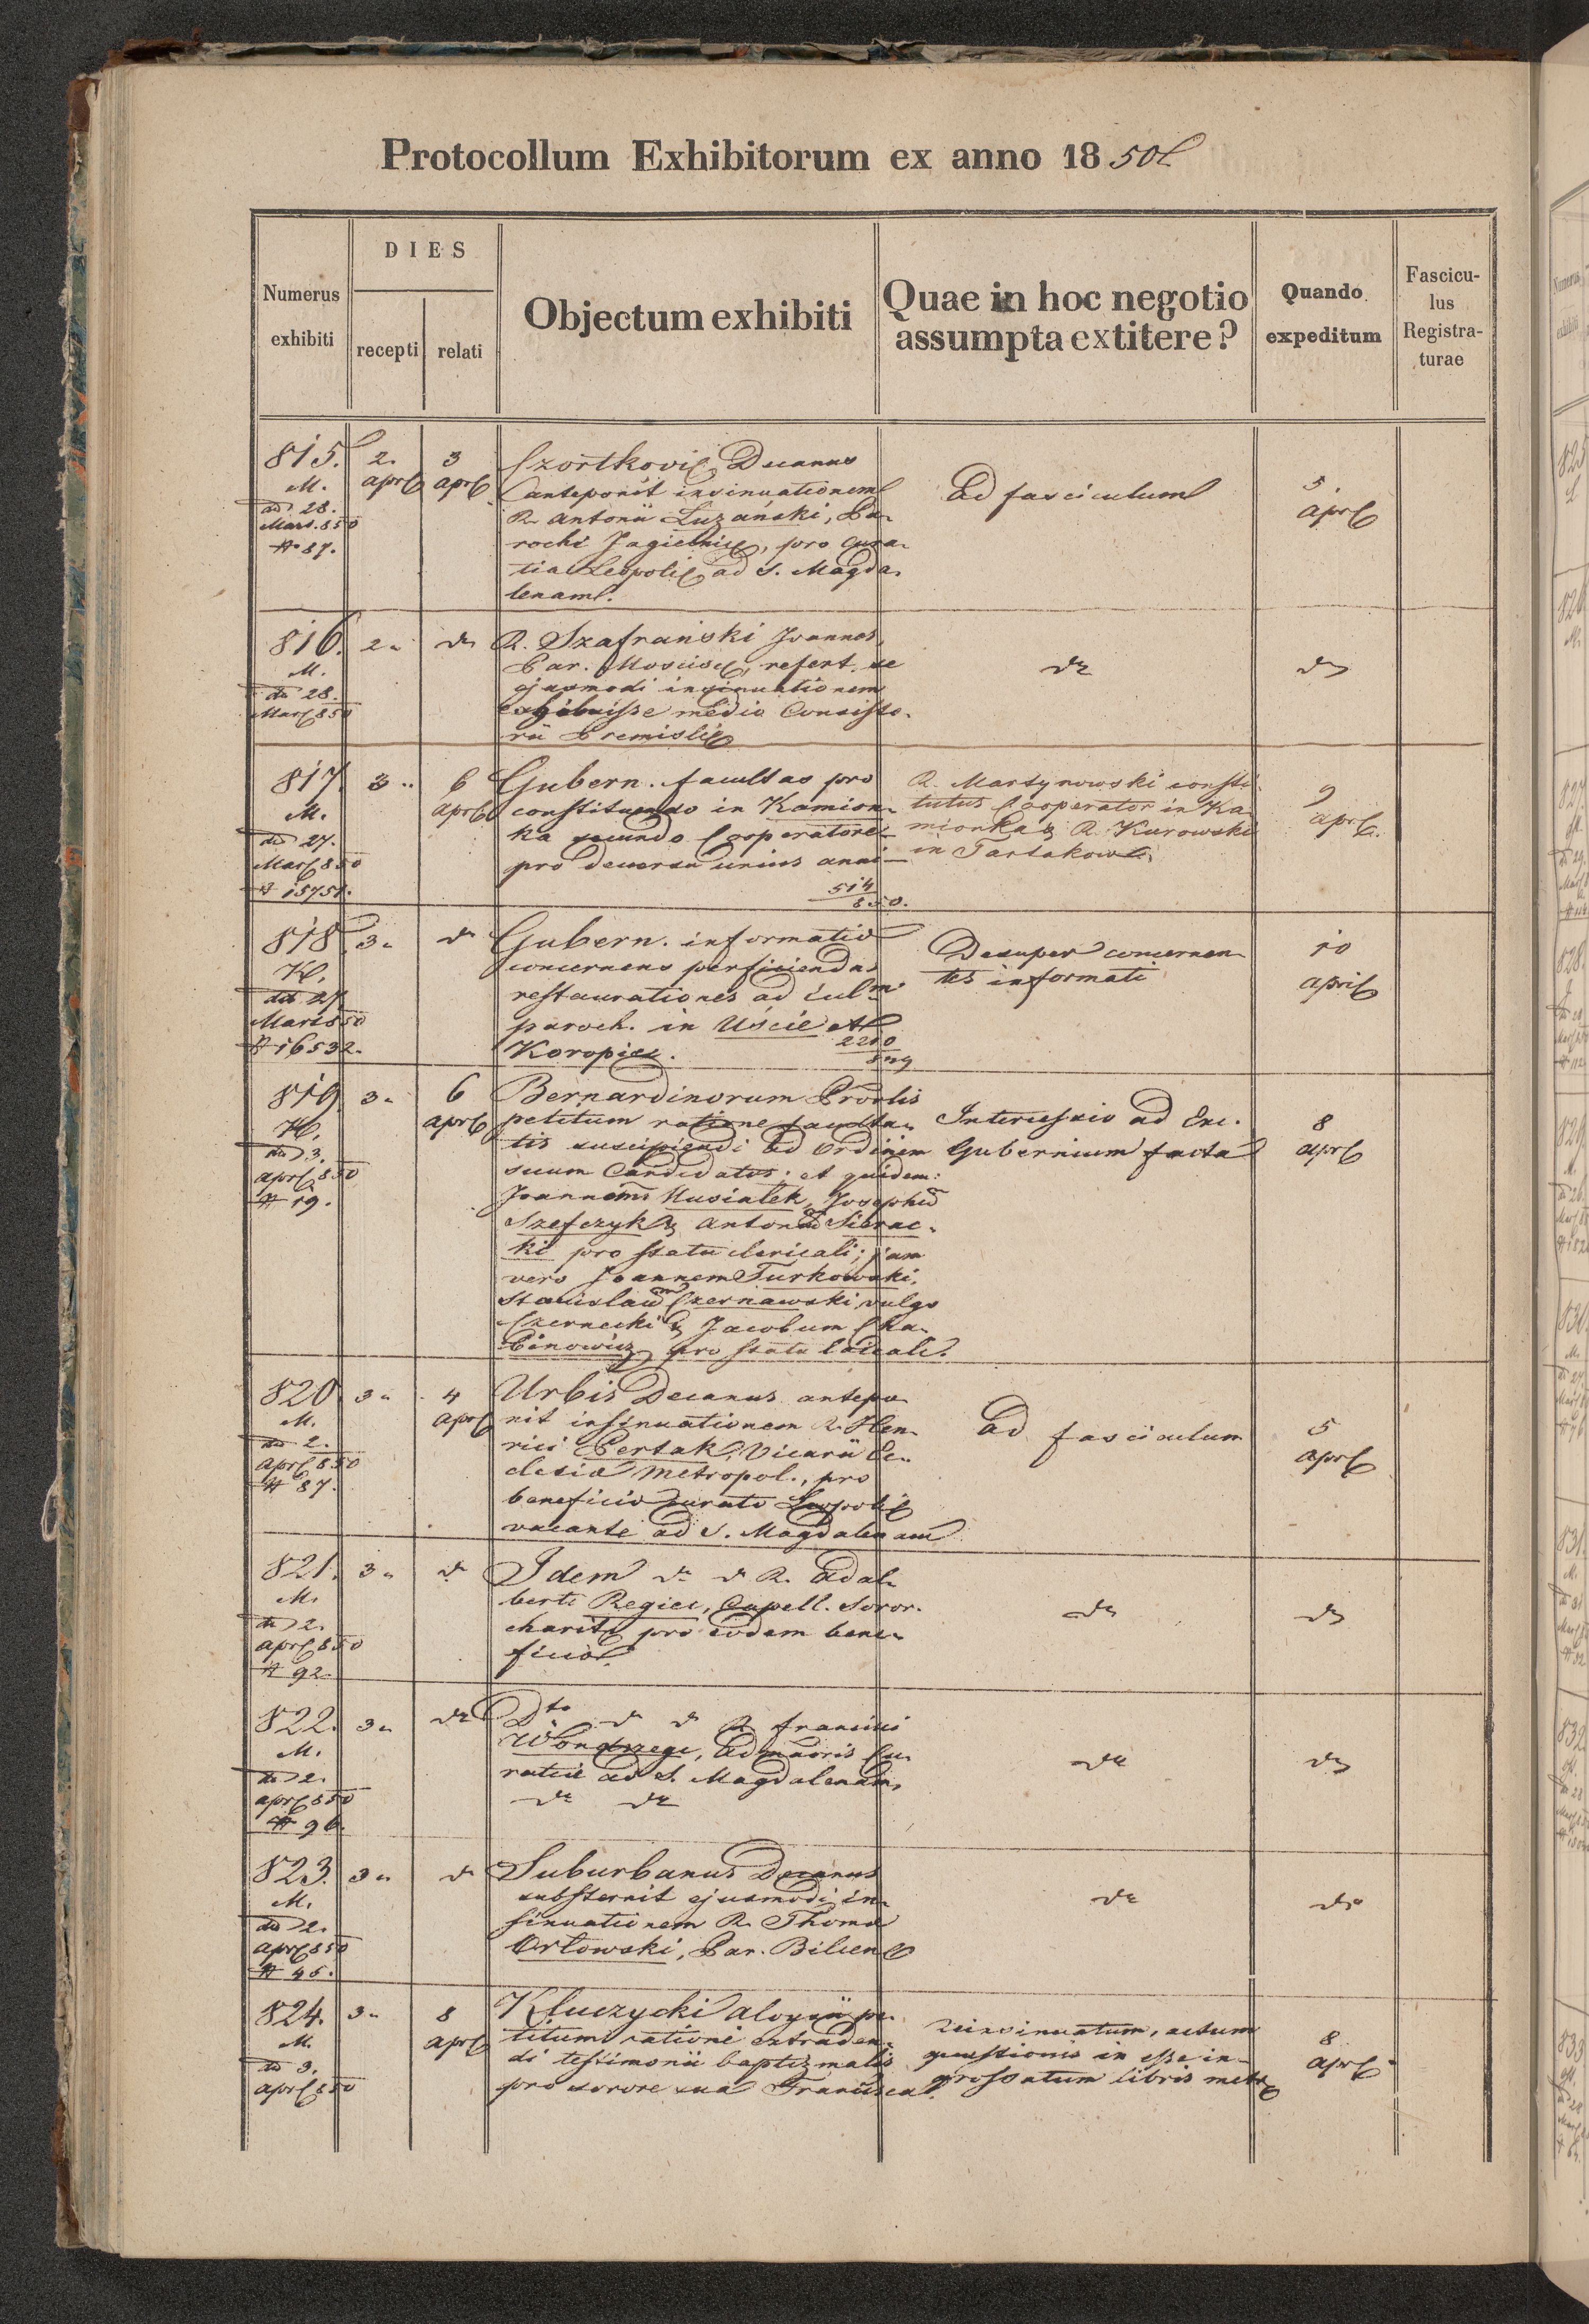 Protocollum Exhibitorum ex anno 1850
Numerus exhibiti
DIES
recepti
relati
Objectum exhibiti
Quae in hoc negotio
assumpta extitere?
Quando
expeditum
Fascicu-
lus
Registra-
turae
815.
M.
dd 28.
Mart. 850
# 87.
2.
Aprl
3
Aprl
Czortkovi Decanus
anteponit insinuationem
R. Antonii Luzański, Pa-
rochi Jagielnic, pro Cura-
tia Leopoli ad S. Magda-
lenam.
Ad fasciculum
5
Aprl
816.
M.
dd 28.
Mart 850
2 "
do
R. Szafrański Joannes,
Par. Mościsc, refert se
ejusmodi insinuationem
exhibuisse medio Consisto-
rii Premisli
do
do
817.
M.
dd 27.
Mart 850
# 15751.
3 "
6
Aprl
Gubern. facultas pro
constituendo in Kamion-
ka secundo Cooperatore
pro decursu unius anni
514
850.
R. Martynowski consti-
tutus Cooperator in Ka-
mionka & R. Kurowski
in Tartakow
9
Aprl.
818.
H.
dd 27.
Mart 850
# 16532.
3 "
do
Gubern. informatio
concernens perficiendas
restaurationes ad
paroch. in Uście et
Koropiec.
Desuper concernen-
tes informati
10
April
819.
H.
dd 3.
Aprl 850
# 19.
3 "
6
Aprl
Bernardinorum Provlis
petitum ratione faculta-
tis suscipiendi ad Ordinem
suum Candidatos; et quidem:
Joannem Kusiałek, Josephum
Szefczyk & Antonium Sierac-
ki pro statu clericali; jam
vero Joannem Turkowski,
Stanislaum Czernawski vulgo
Czernecki & Jacobum Cha-
binowicz pro statu laicali.
Intercessio ad Exc.
Gubernium facta
8
Aprl
820.
M.
dd 2.
Aprl 850
# 87.
3 "
4
Aprl
Urbis Decanus antepo-
nit insinuationem R. Hen-
rici Pertak, Vicarii Ec-
clesia Metropol., pro
beneficio curato Leopoli
vacante ad S. Magdalenam
Ad fasciculum
5
Aprl
821.
M.
dd 2.
Aprl 850
# 92.
3 "
do
Idem do do R. Adal-
berti Regiec, Capell. Soror.
charit. pro eodem bene-
ficio.
do
do
822.
M.
dd 2.
Aprl 850
# 96.
3 "
do
Dto do do R. Francisci
ratiae ad S. Magdalenam,
do do
do
do
823.
M.
dd 2.
Aprl 850
# 45.
3 "
do
Suburbanus Decanus
substernit ejusmodi in-
sinuationem R. Thoma
Orłowski, Par. Bilcen
do
do
824.
M.
dd 3.
Aprl 850
3 "
8
Aprl
Kluczycki Aloysii pe-
titum ratione extraden-
di testimonii baptizmalis
pro sorore sua Francisca.
Reinsinuatum, actum
questionis in esse in-
grossatum libris metr
8
Aprl